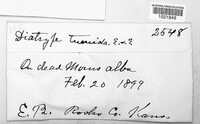 1021849
Diatrype tumida. E. & E. 2548
On dead Morus alba
Feb. 20 1899
E. B. Rooks Co. Kans.